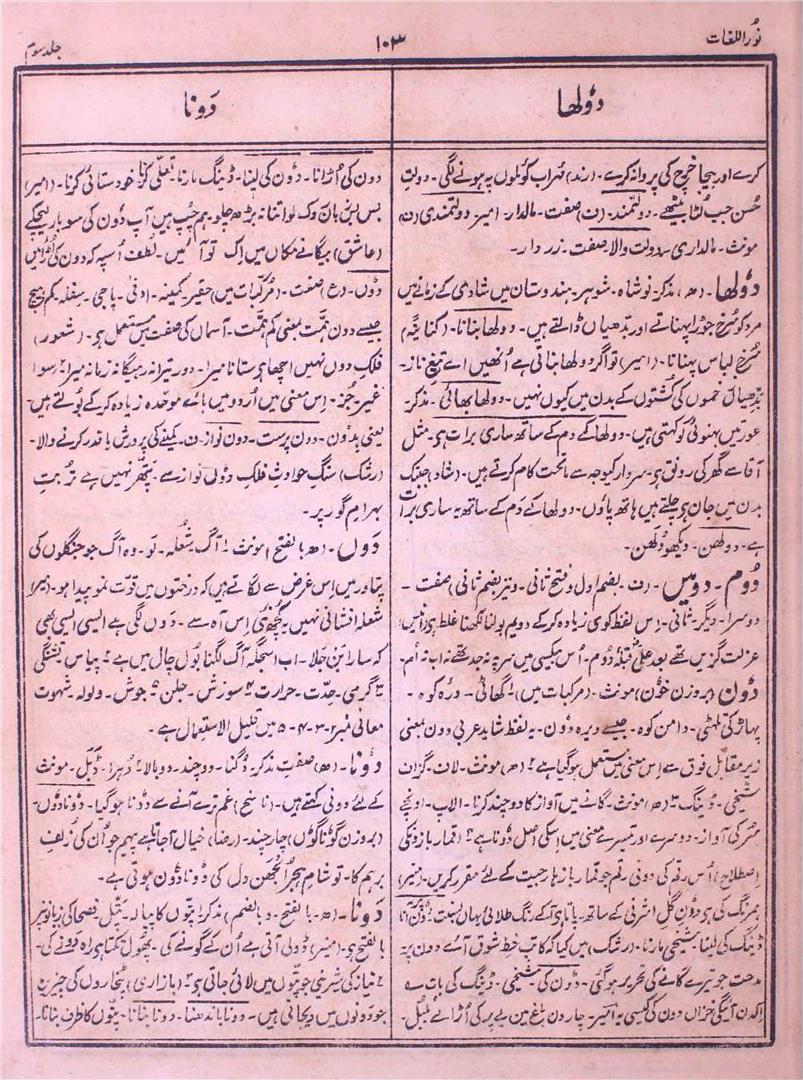 نُور اللغات
۱۰۳
جلد سوم
دولھا
دَونا
کرے اور بیجا خرچ کی پروا نہ کرے۔ (رند) شہراب کوٹلوں پہ ہونے لگی۔ دولتِ
حُسن جب لٹا بیٹھے۔ دولتمند۔ (ن) صفت۔ مالدار۔ امیر۔ دولتمندی (ن)
مونث۔ مالداری۔ دولت والا۔ صفت۔ زردار۔
دُولھا۔ (ھ) مذکر۔ نوشاہ۔ شوہر۔ ہندوستان میں شادی کے زمانے میں
مرد کو سُرخ جوڑا پہناتے اور بدھیاں ڈالتے ہیں۔ دولھا بنانا۔ (کنایۃً)
سُرخ لباس پہنانا۔ (امیر) تو اگر دولھا بناتی ہے اُنھیں اے تیغِ ناز۔
بدّھیاں زخموں کی کشتوں کے بدن میں کیوں نہیں۔ دولھا بھائی۔ مذکر۔
عورتیں بہنوئی کو کہتی ہیں۔ دولھا کے دم کے ساتھ ساری برات ہی۔ مثل
آقا سے گھر کی رونق ہی۔ سردار کیوجہ سے ماتحت کام کرتے ہیں۔ (شاد) جبتک
بدن میں جان ہی چلتے ہیں ہاتھ پاؤں۔ دولھا کے دَم کے ساتھ یہ ساری برات
ہے۔ دولھن۔ دیکھو دُلھن۔
دُوم۔ دویں۔ (ف۔ بضم اول و فتح ثانی۔ و نیز بضم ثانی) صفت۔
دوسرا۔ دیگر۔ ثانی۔ اِس لفظ کو ی زیادہ کرکے دویم بولنا لکھنا غلط ہی (انیس)
عزلت گزیں تھے بعد علی قبلۂ دُوم۔ اُس بیکسی میں سر پہ نہ جد تھے نہ اب نہ اُم۔
دُون (بروزن خُون) مونث۔ (مرکبات میں) ۱ گھاٹی۔ درّہ کوہ۔
پہاڑ کی تلہٹی۔ دامن کوہ۔ جیسے دیرہ دُون۔ یہ لفظ شاید عربی دون بمعنی
زیر مقابل فوق سے اس معنی میں مستعمل ہوگیا ہے ۲ (ھ) مونث۔ لاف۔ گزاف
شیخی۔ ڈینگ ۳ (ھ) مونث۔ گانے میں آواز کا دوچند کرنا۔ الاپ۔ اونچے
سُر کی آواز۔ دوسرے اور تیسرے معنی میں اسکی اصل دُونا ہے ۴ (قمار بازونکی
اصطلاح) اُس رقم کی دونی رقم جو قمار باز ہار جیت کے لئے مقرر کریں۔ (منیر)
ہمرنگ کی ہی دون گلِ اشرفی کے ساتھ۔ پاتا ہی آکے رنگ طلائی یہاں بسنت۔ دُون کا
ڈینگ کی لینا۔ شیخی مارنا۔ (رشک) میں کیا کہ کاتب خطِ شوق آسے دون پر۔
مدحت جو تیرے گانے کی تحریر ہوگئی۔ دُون کی۔ شیخی۔ ڈینگ کی بات۔
اکدن آئیگی خزاں دون کی کیسی یہ امیر۔ چار دن باغ میں بے پر کی اُڑالے بُلبل۔
دون کی اُڑانا۔ دُون کی لینا۔ ڈینگ مارنا۔ تعلّی کرنا۔ خودستائی کرنا۔ (امیر)
بس بس زبان روک لو اتنا نہ بڑھ چلو۔ ہم چپ ہیں آپ دُون کی سو بار لیچکے
(عاشق) بیگانے مکاں میں اِک تو آئیں۔ لطف اُسپہ کہ دون کی اڑائیں
دُوں۔ (ع) صفت۔ (مرکبات میں) حقیر۔ کمینہ۔ ادنیٰ۔ پاجی۔ سفلہ۔ کم۔ ہیچ
جیسے دون ہمّت بمعنی کم ہمّت۔ آسماں کی صفت میں مستعمل ہی۔ (شعور)
فلکِ دوں نہیں اچھا ہی ستانا میرا۔ دور تیرا نہ رہیگا نہ زمانہ میرا ۲ سوا
غیر۔ جُز۔ اِس معنی میں اُردو میں بائے موحدہ زیادہ کرکے بولتے ہیں۔
یعنی بدون۔ دون پرست۔ دون نواز۔ ن۔ کمینے کی پرورش یا قدر کرنے والا۔
(رشک) سنگِ حوادثِ فلکِ دوں نواز سے۔ پتھر نہیں ہے تُربتِ
بہرام گور پر۔
دَوں۔ (ھ بالفتح) مونث ۱ آگ۔ شُعلہ۔ لَو۔ وہ آگ جو جنگلوں کی
پتاور میں اِس غرض سے لگاتے ہیں کہ درختوں میں قوّتِ نمو پیدا ہو۔ (میر)
شعلہ افشانی نہیں یہ کچھ نئی اِس آہ سے۔ دَوں لگی ہے ایسی ایسی بھی
کہ سارا بَن جلا۔ اب اسجگہ آگ لگنا بول چال میں ہے ۲ پیاس۔ تشنگی
۳ گرمی۔ حِدّت۔ حرارت ۴ سوزش۔ جلن ۵ جوش۔ ولولہ۔ شہوت
معانی نمبر ۲-۳-۴-۵ میں قلیل الاستعمال ہے۔
دُونا۔ (ھ) صفت۔ مذکر۔ دُگنا۔ دوچند۔ دوبالا ۲ دُہرا۔ ڈبل۔ مونث
کے لئے دونی کہتے ہیں۔ (ناسخ) غم ترے آنے سے دُونا ہوگیا۔ دُونا دُوں۔
(بروزن گوناگوں) چار چند۔ (رضا) خیال آجاتا ہے پیہم جو اُن کی زلفِ
برہم کا۔ تو شامِ ہجر اُلجھن دل کی دُونا دُون ہوتی ہے۔
دَونا۔ (ھ۔ بالفتح۔ و بالضم) مذکر ۱ پتّوں کا پیالہ۔ پتّل۔ فصحا کی زبانوں پر
بالفتح ہی۔ (منیر) ڈولی آتی ہے اُن کے گونے کی۔ پھول تکتا ہی راہ دَونے کی۔
۲ نیاز کی شرینی جو پتّوں میں لائی جاتی ہی ۳ (بازاری) بخاروں کی جنیرہ
جو دونوں میں دیجاتی ہیں۔ دونا باندھنا۔ دونا بنانا۔ پتّوں کا ظرف بنانا۔